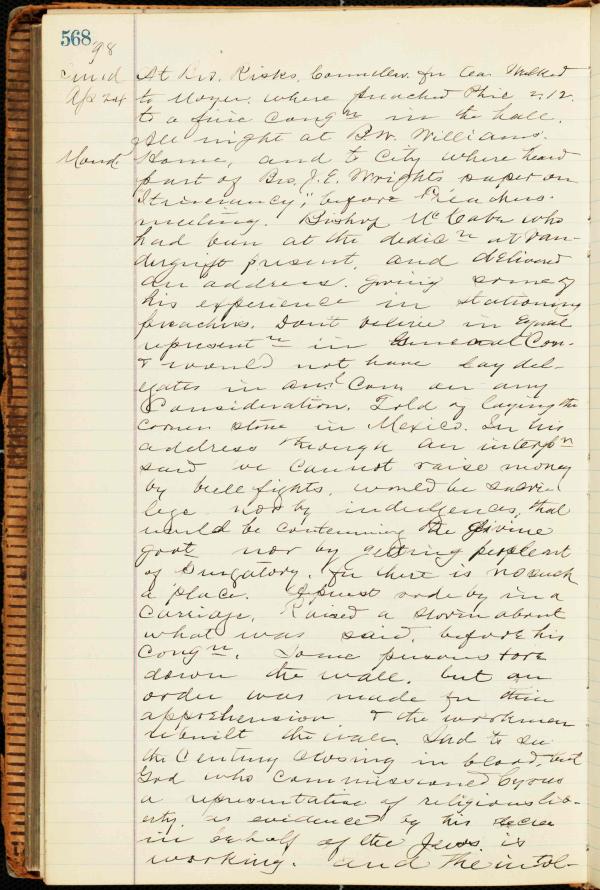 568
98
Sund At Bro. Risks, Connellsv. for tea. Walked
Apr 24 to Moyer. where preached Phil 2:12.
to a fine congn in the hall.
All night at B.W. Williams.
Mond. Home, and to City where heard
part of Bro. J.E. Wrights paper on
"Itinerancy", before Preachers.
meeting. Bishop McCabe who
had been at the dedicn at Van-
dergrift present, and delivered
an address. giving some of
his experience in stationing
preachers. Dont believe in Equal
representn in General Con.
& would not have lay del-
egates in Anl Con. on any
Consideration. Told of laying the
corner stone in Mexico. In his
address through an interpn
said we cannot raise money
by bull fights, would be sacri
lege nor by indulgences, that
would be contemning the divine
govt, nor by getting people out
of Purgatory. for there is no such
a place. A priest rode by in a
carriage. Raised a storm about
what was said, before his
Congn. Some persons tore
down the wall, but an
order was made for their
apprehension, & the workmen
rebuilt the wall. Sad to see
the Century closing in blood, but
God who commissioned Cyrus
a representative of religious lib-
erty. as evidenced by his decree
in behalf of the Jews. is
working. and the intol-